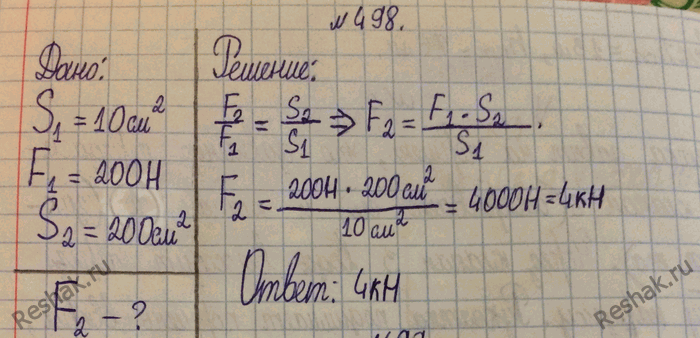 №498.
Дано:
S₁ = 10 см²
F₁ = 200Н
S₂ = 200 см²
F₂ – ?
Решение:
F₂/F₁ = S₂/S₁ ⇒ F₂ = F₁·S₂/S₁.
F₂ = 200Н · 200 см²/10 см² = 4000Н = 4кН
Ответ: 4кН
Reshak.ru
Reshak.ru